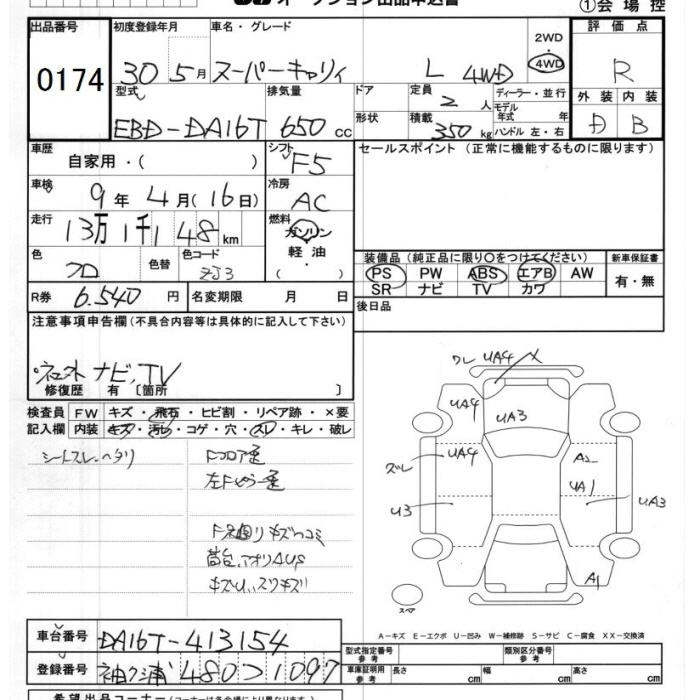 ①会場控
出品番号 初度登録年月 車名・グレード 2WD 評価点
0174 30年5月 スーパーキャリィ L 4WD 4WD R
型式 排気量 ドア 定員 2人 ディーラー・並行 外装 内装
EBD-DA16T 650cc 形状 積載 350kg モデル年式 年 ハンドル 左・右 D B
車歴 自家用・( ) シフト F5 セールスポイント(正常に機能するものに限ります)
車検 9年4月(16日) 冷房 AC
走行 13万1千148km 燃料 ガソリン
軽油・( )
色 クロ 色替 色コード ZJ3
装備品(純正品に限り○をつけてください) 新車保証書
PS PW ABS エアB AW 有・無
SR ナビ TV カワ
R券 6.540円 名変期限 月 日 後日品
注意事項申告欄(不具合内容等は具体的に記入して下さい)
ナビ、TV
修復歴 有 〔箇所 〕
検査員 FW キズ・飛石・ヒビ割・リペア跡・×要
記入欄 内装 キズ・汚れ・コゲ・穴・スレ・キレ・破レ
シートスレ、ヘタリ Fフロア歪
荷台、アオリ
ワレ UA4 X
UA4
UA3
ズレ UA4 A2
UA1
U3 UA3
A1
スペア
A-キズ E-エクボ U-凹み W-補修跡 S-サビ C-腐食 XX-交換済
車台番号 DA16T-413154 型式指定番号 参考 類別区分番号 参考
登録番号 袖ケ浦480つ1097 車庫証明用 参考 長さ cm 幅 cm 高さ cm
希望出品コーナー